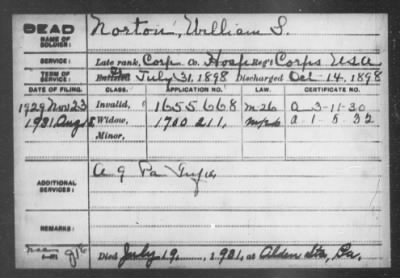 DEAD
NAME OF SOLDIER: Norton, William S.
SERVICE: Late rank, Corp. Co. Hosp Reg't Corps USA
TERM OF SERVICE: July 31, 1898 Discharged Oct 14, 1898
DATE OF FILING. CLASS. APPLICATION NO. LAW. CERTIFICATE NO.
1929 Nov 23 Invalid, 1655668 M-26 a 3-11-30
1931 Aug Widow, 1700211, a-1-5-32
Minor,
ADDITIONAL SERVICES: Pa
REMARKS:
Died July 19, 1931, at Alden Sta, Pa.